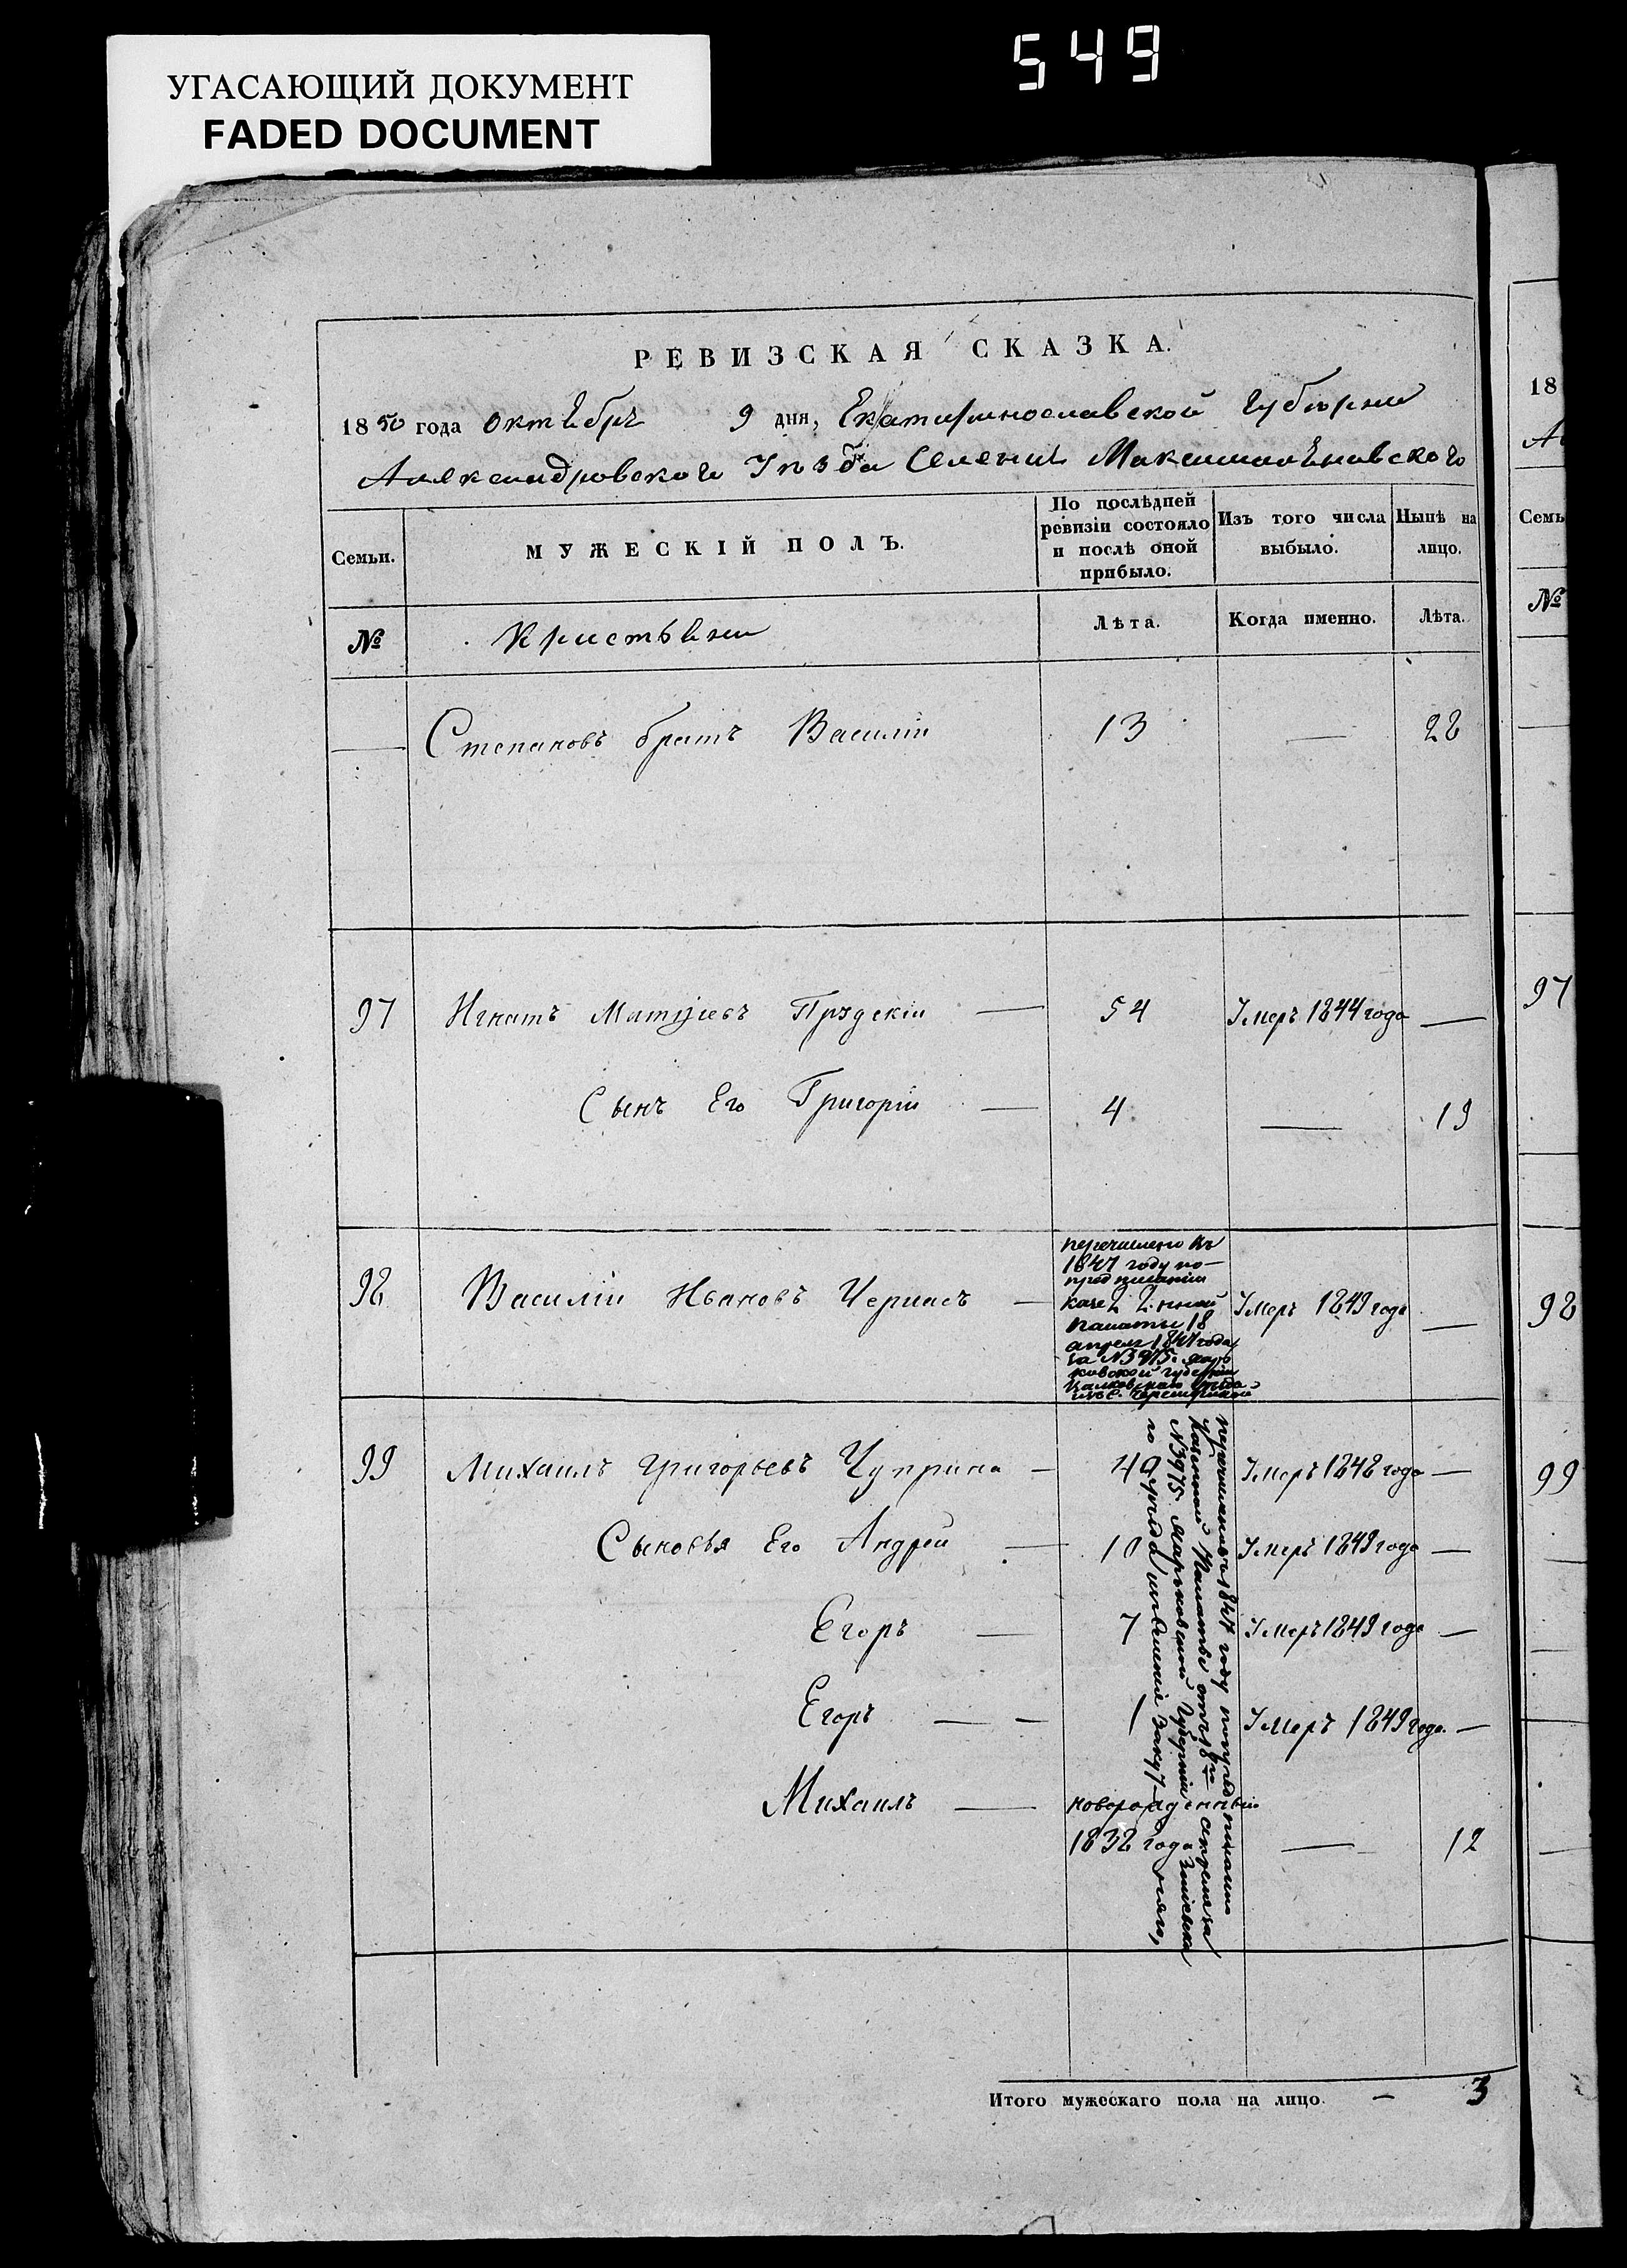 УГАСАЮЩИЙ ДОКУМЕНТ
FADED DOCUMENT
549
РЕВИЗСКАЯ СКАЗКА.
1850 года октября 9 дня, Екатеринославской Губернии
Александровского Уезда Селения Максимильяновского
Семьи.
МУЖЕСКІЙ ПОЛЪ.
По послѣдней
ревизіи состояло
и послѣ оной
прибыло.
Изъ того числа
выбыло.
Нынѣ на
лицо.
№
Лѣта.
Когда именно.
Лѣта.
Степановъ братъ Василій 13 — 22
97 Игнатъ — 54 Умеръ 1844 года —
Сынъ Его Григорій — 4 — 19
98 Василій Ивановъ — Умеръ 1849 года —
перечислено въ
1847 году по-
предписанію
Палаты 18
апреля 1847 года
за №3975.
99 Михаилъ Григорьевъ Чуприна — 40 Умеръ 1848 года —
Сыновья Его Андрей — 10 Умеръ 1849 года —
Егоръ — 7 Умеръ 1849 года —
Егоръ — — 1 Умеръ 1849 года. —
Михаилъ — новорожденный
1838 года — 12
1847 году по предписанию
Казенной Палаты отъ 18го апреля за
№3975. Харьковской Губернии
Итого мужескаго пола на лицо. — 3
18
Семь
№
97
98
99